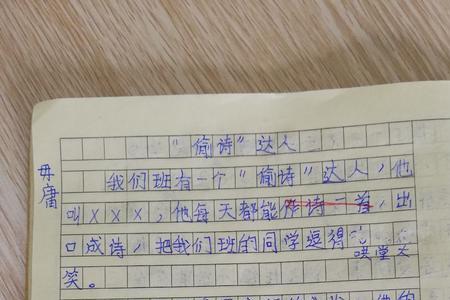 "偷诗"达人
毋庸
我们班有一个"偷诗"达人，他
叫XXX，他每天都能作诗一首，出
口成诗，把我们班的同学逗得
哄堂大
笑。